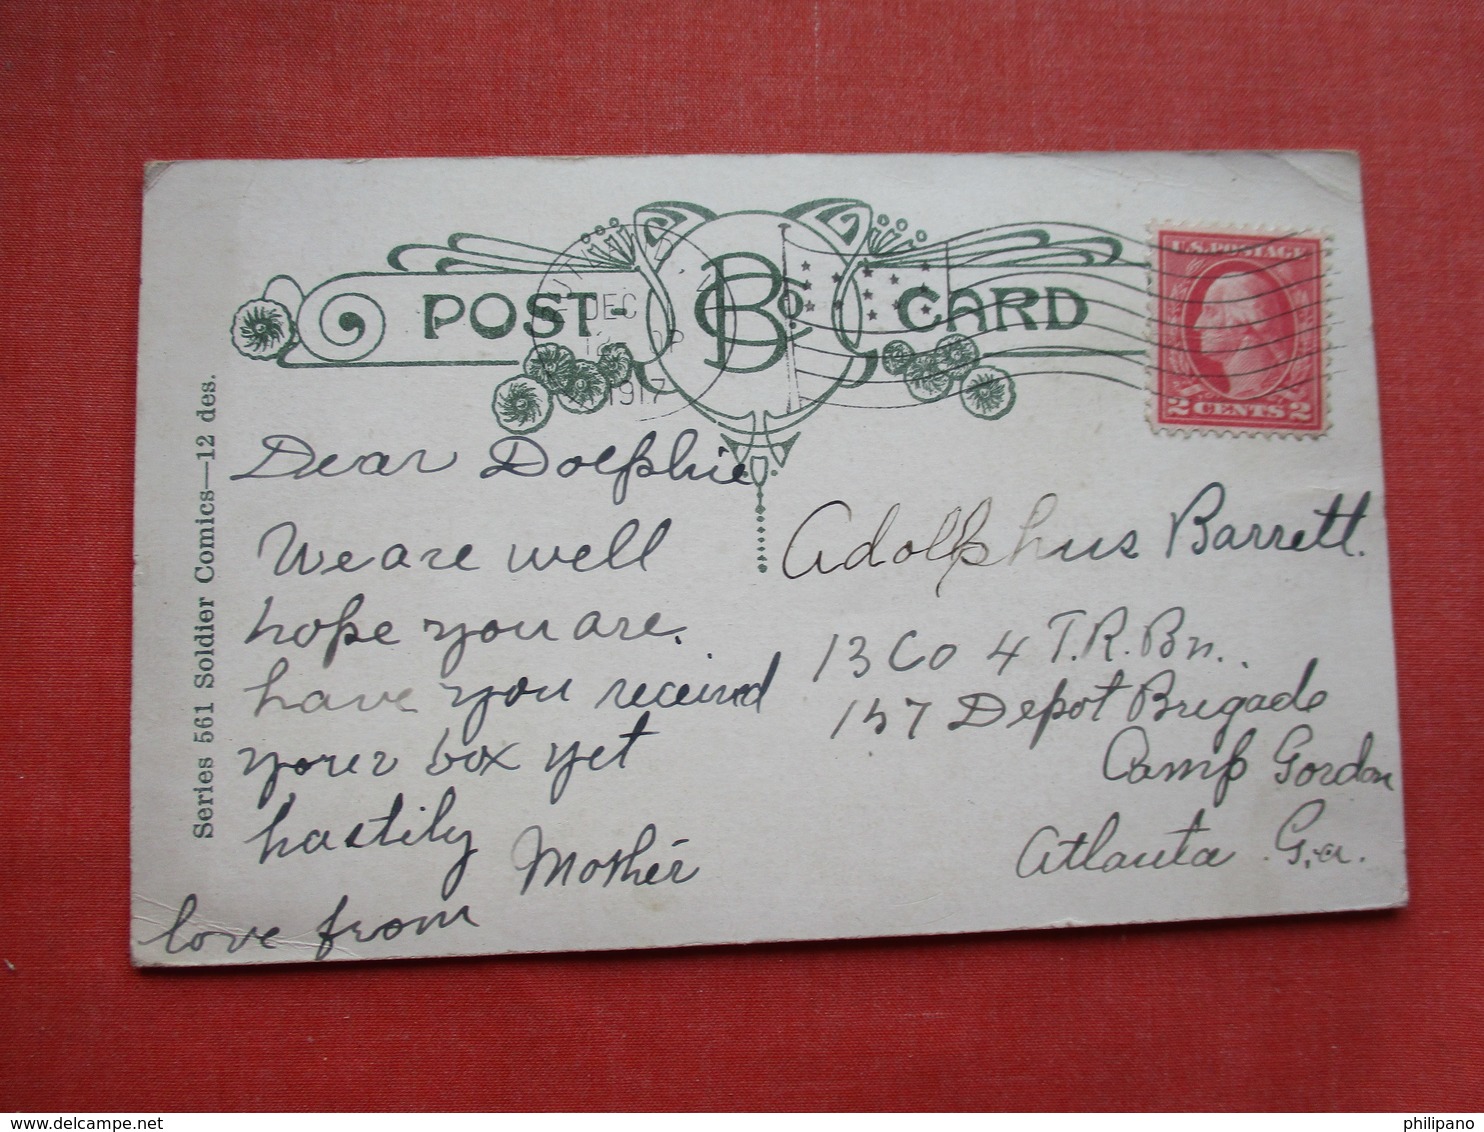 POST CARD
BCo.
DEC
1917
U.S. POSTAGE
2 CENTS 2
Series 561 Soldier Comics—12 des.
Dear Dolphie
We are well
hope you are.
have you received
your box yet
hastily
love from Mother
Adolphus Barrett.
13 Co 4 T.R. Bn.
157 Depot Brigade
Camp Gordon
Atlanta Ga.
www.delcampe.net
philipano